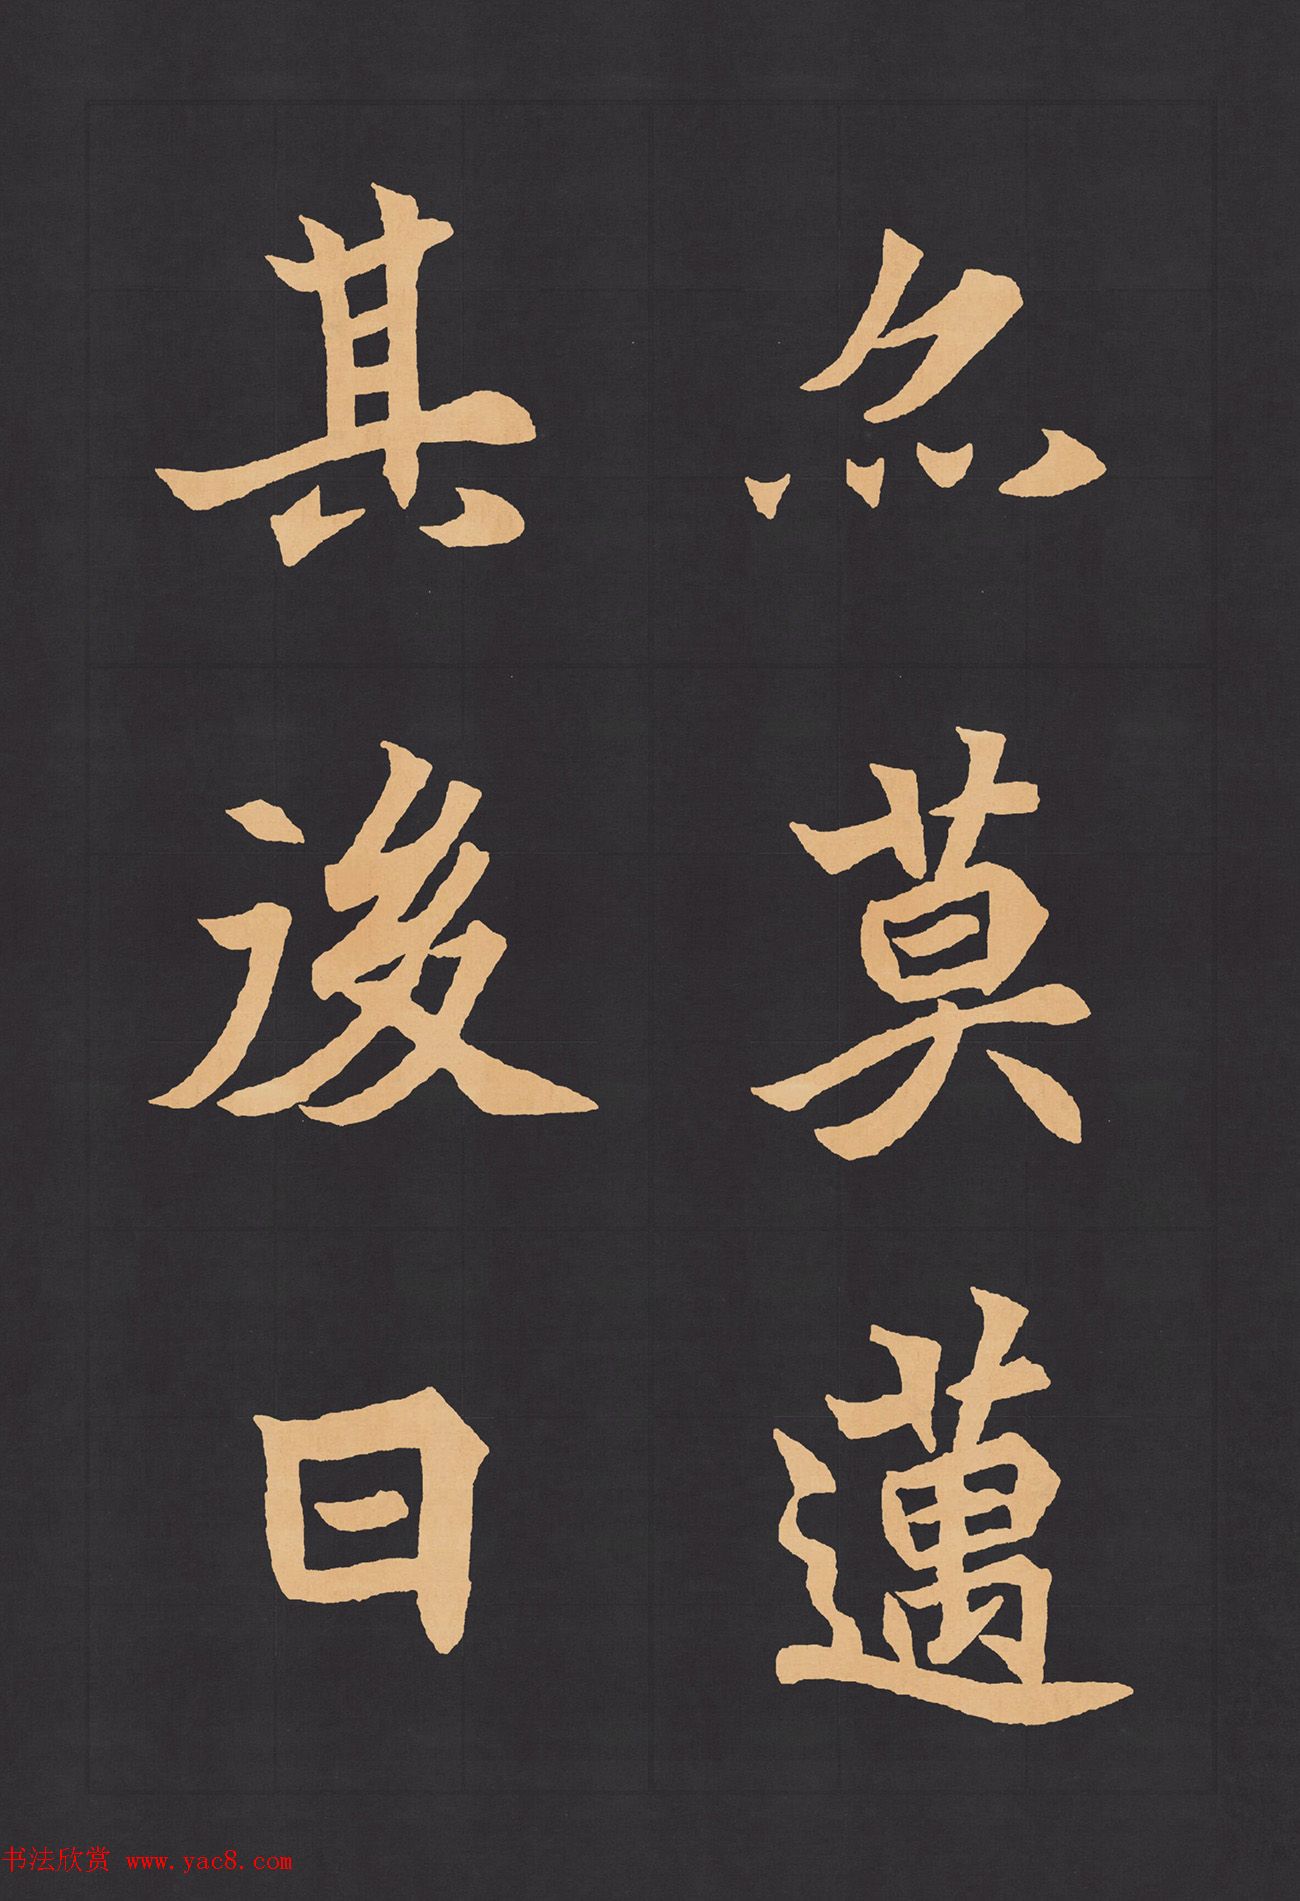 莫邁
其後日
书法欣赏 www.yac8.com